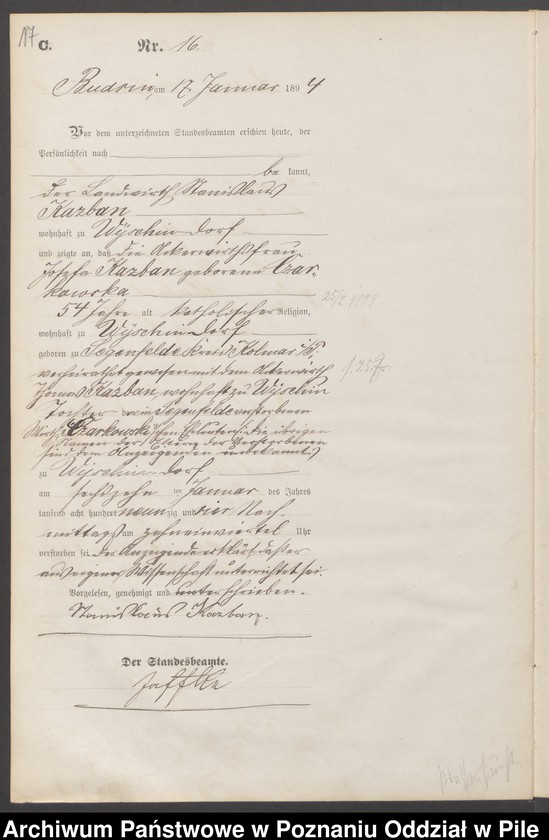 17
C. Nr. 16.
Budsin, am 17. Januar 1894
Vor dem unterzeichneten Standesbeamten erschien heute, der
Persönlichkeit nach
be kannt,
der Landwirth Stanislaus
Kazban
wohnhaft zu Wÿschin Dorf
und zeigte an, daß die Ackerwirthsfrau
Josefa Kazban geborene Czar-
kowska
54 Jahre alt katholischer Religion,
wohnhaft zu Wÿschin Dorf
geboren zu Segenfelde Kreis Kolmar i/P.
verheirathet gewesen mit dem Ackerwirth
Thomas Kazban, wohnhaft zu Wÿschin
Tochter der in Segenfelde verstorbenen
Wirth Czarkowski'schen Eheleute. Die übrigen
Namen der Eltern der Verstorbenen
sind dem Anzeigenden unbekannt.
zu Wÿschin Dorf
am sechszehn ten Januar des Jahres
tausend acht hundert neunzig und vier Nach-
mittags um zehneinviertel Uhr
verstorben sei. Der Anzeigende erklärt, daß er
aus eigener Wissenschaft unterrichtet sei.
Vorgelesen, genehmigt und unterschrieben.
Stanislaus Kazban.
Der Standesbeamte.
Jaffke
25/2 1899
Archiwum Państwowe w Poznaniu Oddział w Pile